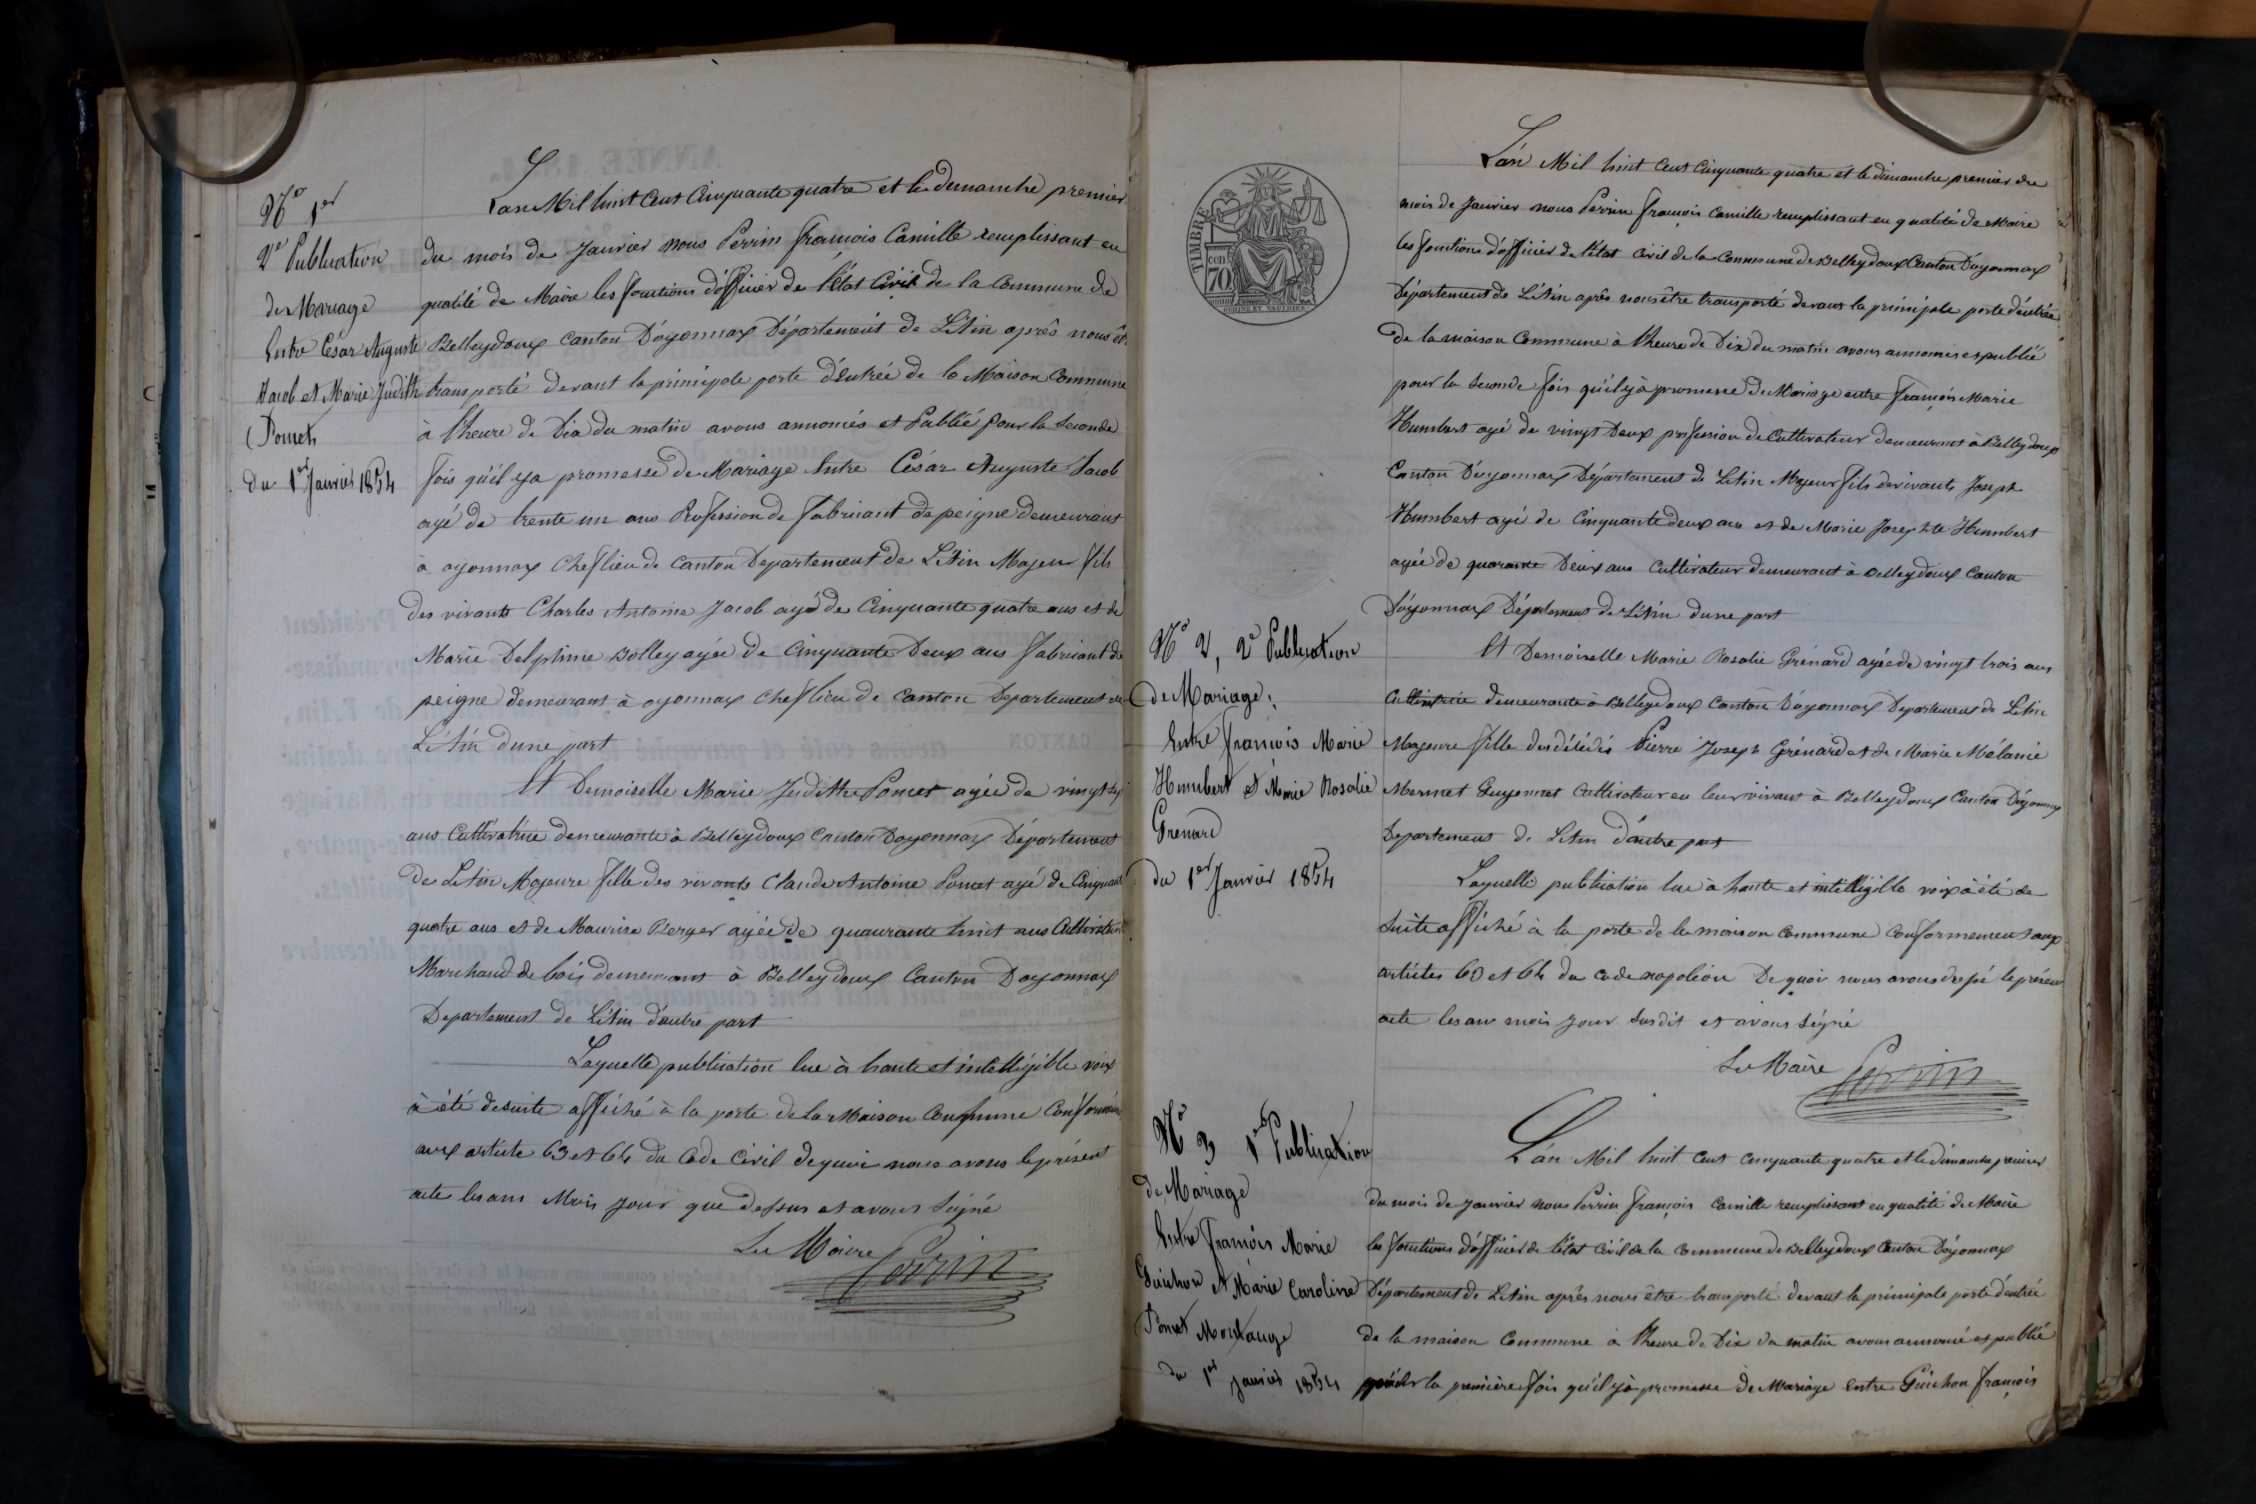 No 1er
2e Publication
de Mariage
Entre César Auguste
Jacob et Marie Judith
Poncet
du 1er Janvier 1854
L'an Mil huit Cent Cinquante quatre et le dimanche premier
du mois de Janvier nous Perrin françois Camille remplissant en
qualité de Maire les fonctions d'officier de l'état Civil de la Commune de
Belleydoux Canton D'oyonnax Département de L'Ain après nous êt
transporté devant la principale porte d'Entrée de la Maison Commune
à l'heure de Dix du matin avons annoncés et Publié pour la Seconde
fois qu'il y a promesse de Mariage Entre César Auguste Jacob
agé de trente un ans Profession de fabricant de peigne demeurant
à oyonnax Chef lieu de Canton Departement de L'Ain Majeur fils
des vivants Charles Antoine Jacob agé de Cinquante quatre ans et de
Marie Delphine Bolley agée de Cinquante Deux ans fabricant de
peigne demeurant à oyonnax Chef lieu de Canton Departement de
L'Ain d'une part
Et Demoiselle Marie Judithe Poncet agée de vingt
ans Cultivatrice demeurante à Belleydoux Canton Doyonnax Département
de L'Ain Majeure fille des vivants Claude Antoine Poncet agé de Cinquante
quatre ans et de Maurise Berger agée de quaurante huit ans Cultivateur
Marchand de bois demeurant à Belleydoux Canton Doyonnax
Departement de L'Ain d'autre part
Laquelle publication lue à haute et intelligible voix
à été desuite affiché à la porte de la Maison Commune Conformém
aux article 63 et 64 du Code Civil de quoi nous avons le présent
acte les ans Mois Jour que dessus et avons Signé
Le Maire Perrin
TIMBRE
cen
70
L'an Mil huit Cent Cinquante quatre et le dimanche premier du
mois de Janvier nous Perrin françois Camille remplissant en qualité de Maire
les fonctions d'officier de l'état Civil de la Commune de Belleydoux Canton D'oyonnax
Département de L'Ain après nous être transporté devant la principale porte d'entrée
de la maison Commune à l'heure de Dix du matin avons annoncés et publié
pour la Seconde fois qu'il y à promesse de Mariage entre françois Marie
Humbert agé de vingt Deux profession de Cultivateur demeurant à Belleydoux
Canton D'oyonnax Département de L'Ain Majeur fils des vivants Joseph
Humbert agé de Cinquante deux ans et de Marie Josephte Humbert
agée de quarante Deux ans Cultivateur demeurant à Belleydoux Canton
D'oyonnax Département de L'Ain d'une part
No 2, 2e Publication
de Mariage
Entre françois Marie
Humbert et Marie Rosalie
Grenard
du 1er Janvier 1854
Et Demoiselle Marie Rosalie Grénard agée de vingt trois ans
Cultivatrice demeurante à Belleydoux Canton D'oyonnax Departement de L'Ain
Majeure fille des dédés Pierre Joseph Grénard et de Marie Mélanie
Mermet Guyonnet Cultivateur en leur vivant à Belleydoux Canton D'oyonnax
Departement de L'Ain d'autre part
Laquelle publication lue à haute et intelligible voix à été de
Suite affiché à la porte de la maison Commune Conformement aux
articles 63 et 64 du Code napoléon De quoi nous avons drepé le présent
acte les an mois Jour Susdit et avons Signé
Le Maire Perrin
No 3 1ere Publication
de Mariage
Entre françois Marie
Guichon et Marie Caroline
Poncet Montange
du 1er Janvier 1854
L'an Mil huit Cent Cinquante quatre et le dimanche premier
du mois de Janvier nous Perrin françois Camille remplissant en qualité de Maire
les fonctions d'officier de l'état Civil de la Commune de Belleydoux Canton D'oyonnax
Département de L'Ain après nous être transporté devant la principale porte d'entrée
de la maison Commune à l'heure de Dix du matin avons annoncé et publié
pour la première fois qu'il y à promesse de Mariage entre Guichon françois